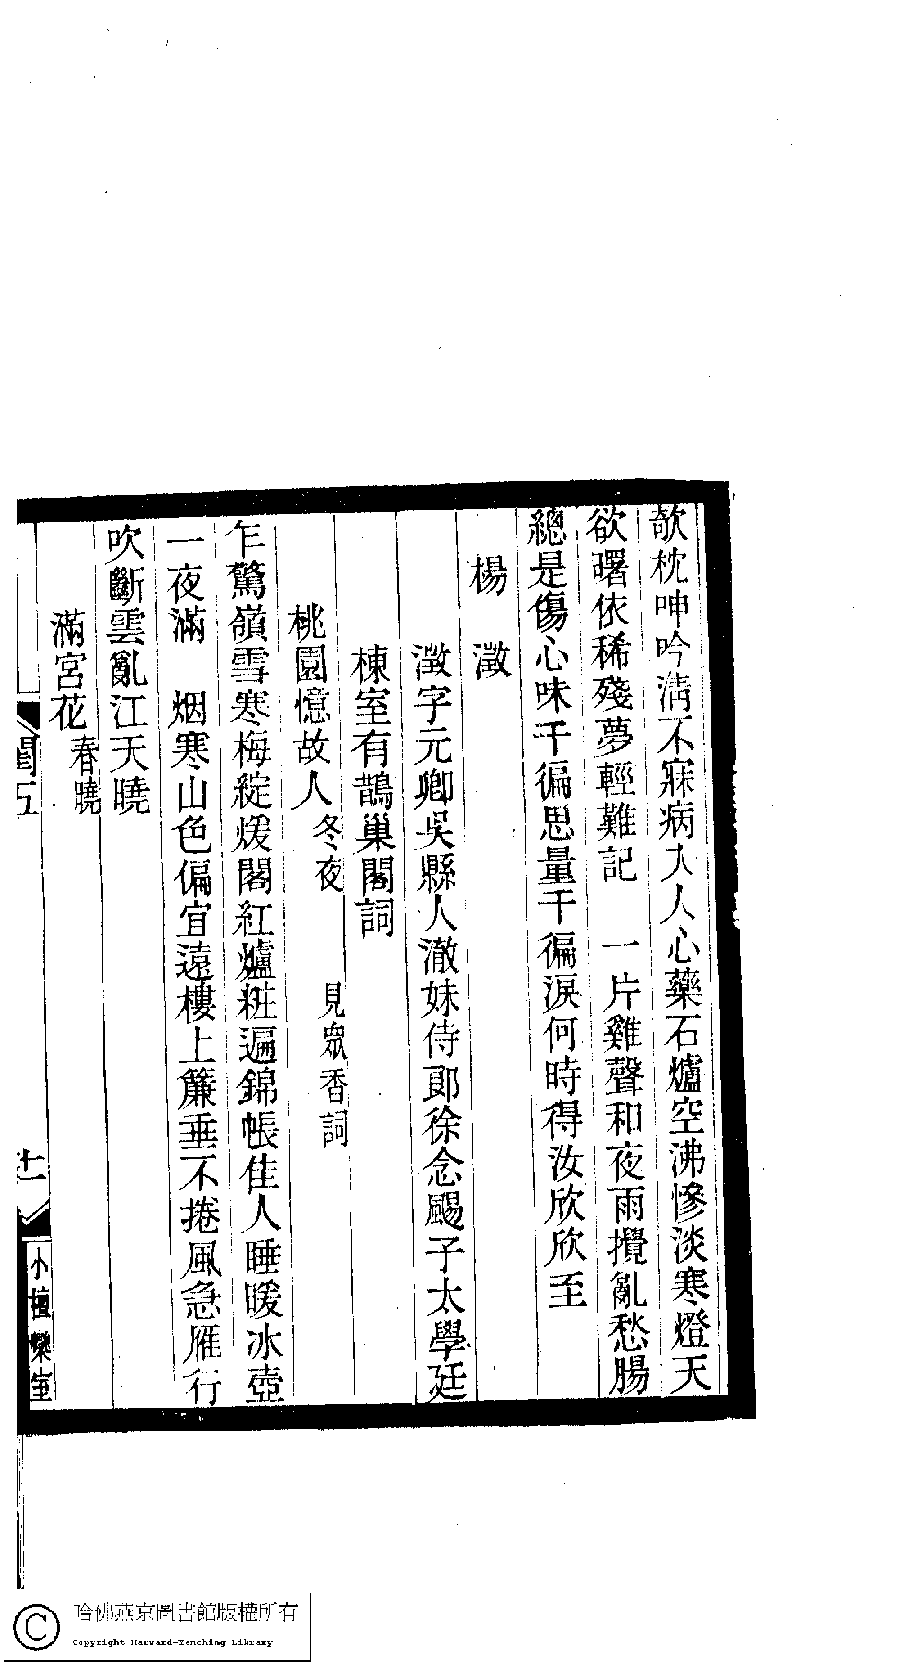 欹枕呻吟淸不寐病人人心藥石爐空沸慘淡寒燈天
欲曙依稀殘夢輕難記　一片雞聲和夜雨攪亂愁腸
總是傷心味千徧思量千徧淚何時得汝欣欣至
楊　澂
澂字元卿吳縣人澈妹侍郎徐念颺子太學廷
棟室有鵲巢閣詞
桃園憶故人 冬夜　見眾香詞
乍驚嶺雪寒梅綻煖閣紅爐粧遍錦帳佳人睡暖冰壺
一夜滿　烟寒山色偏宜遠樓上簾垂不捲風急雁行
吹斷雲亂江天曉
滿宮花 春曉
閨五
十一
小檀欒室
哈佛燕京圖書館版權所有
Copyright Harvard-Yenching Library